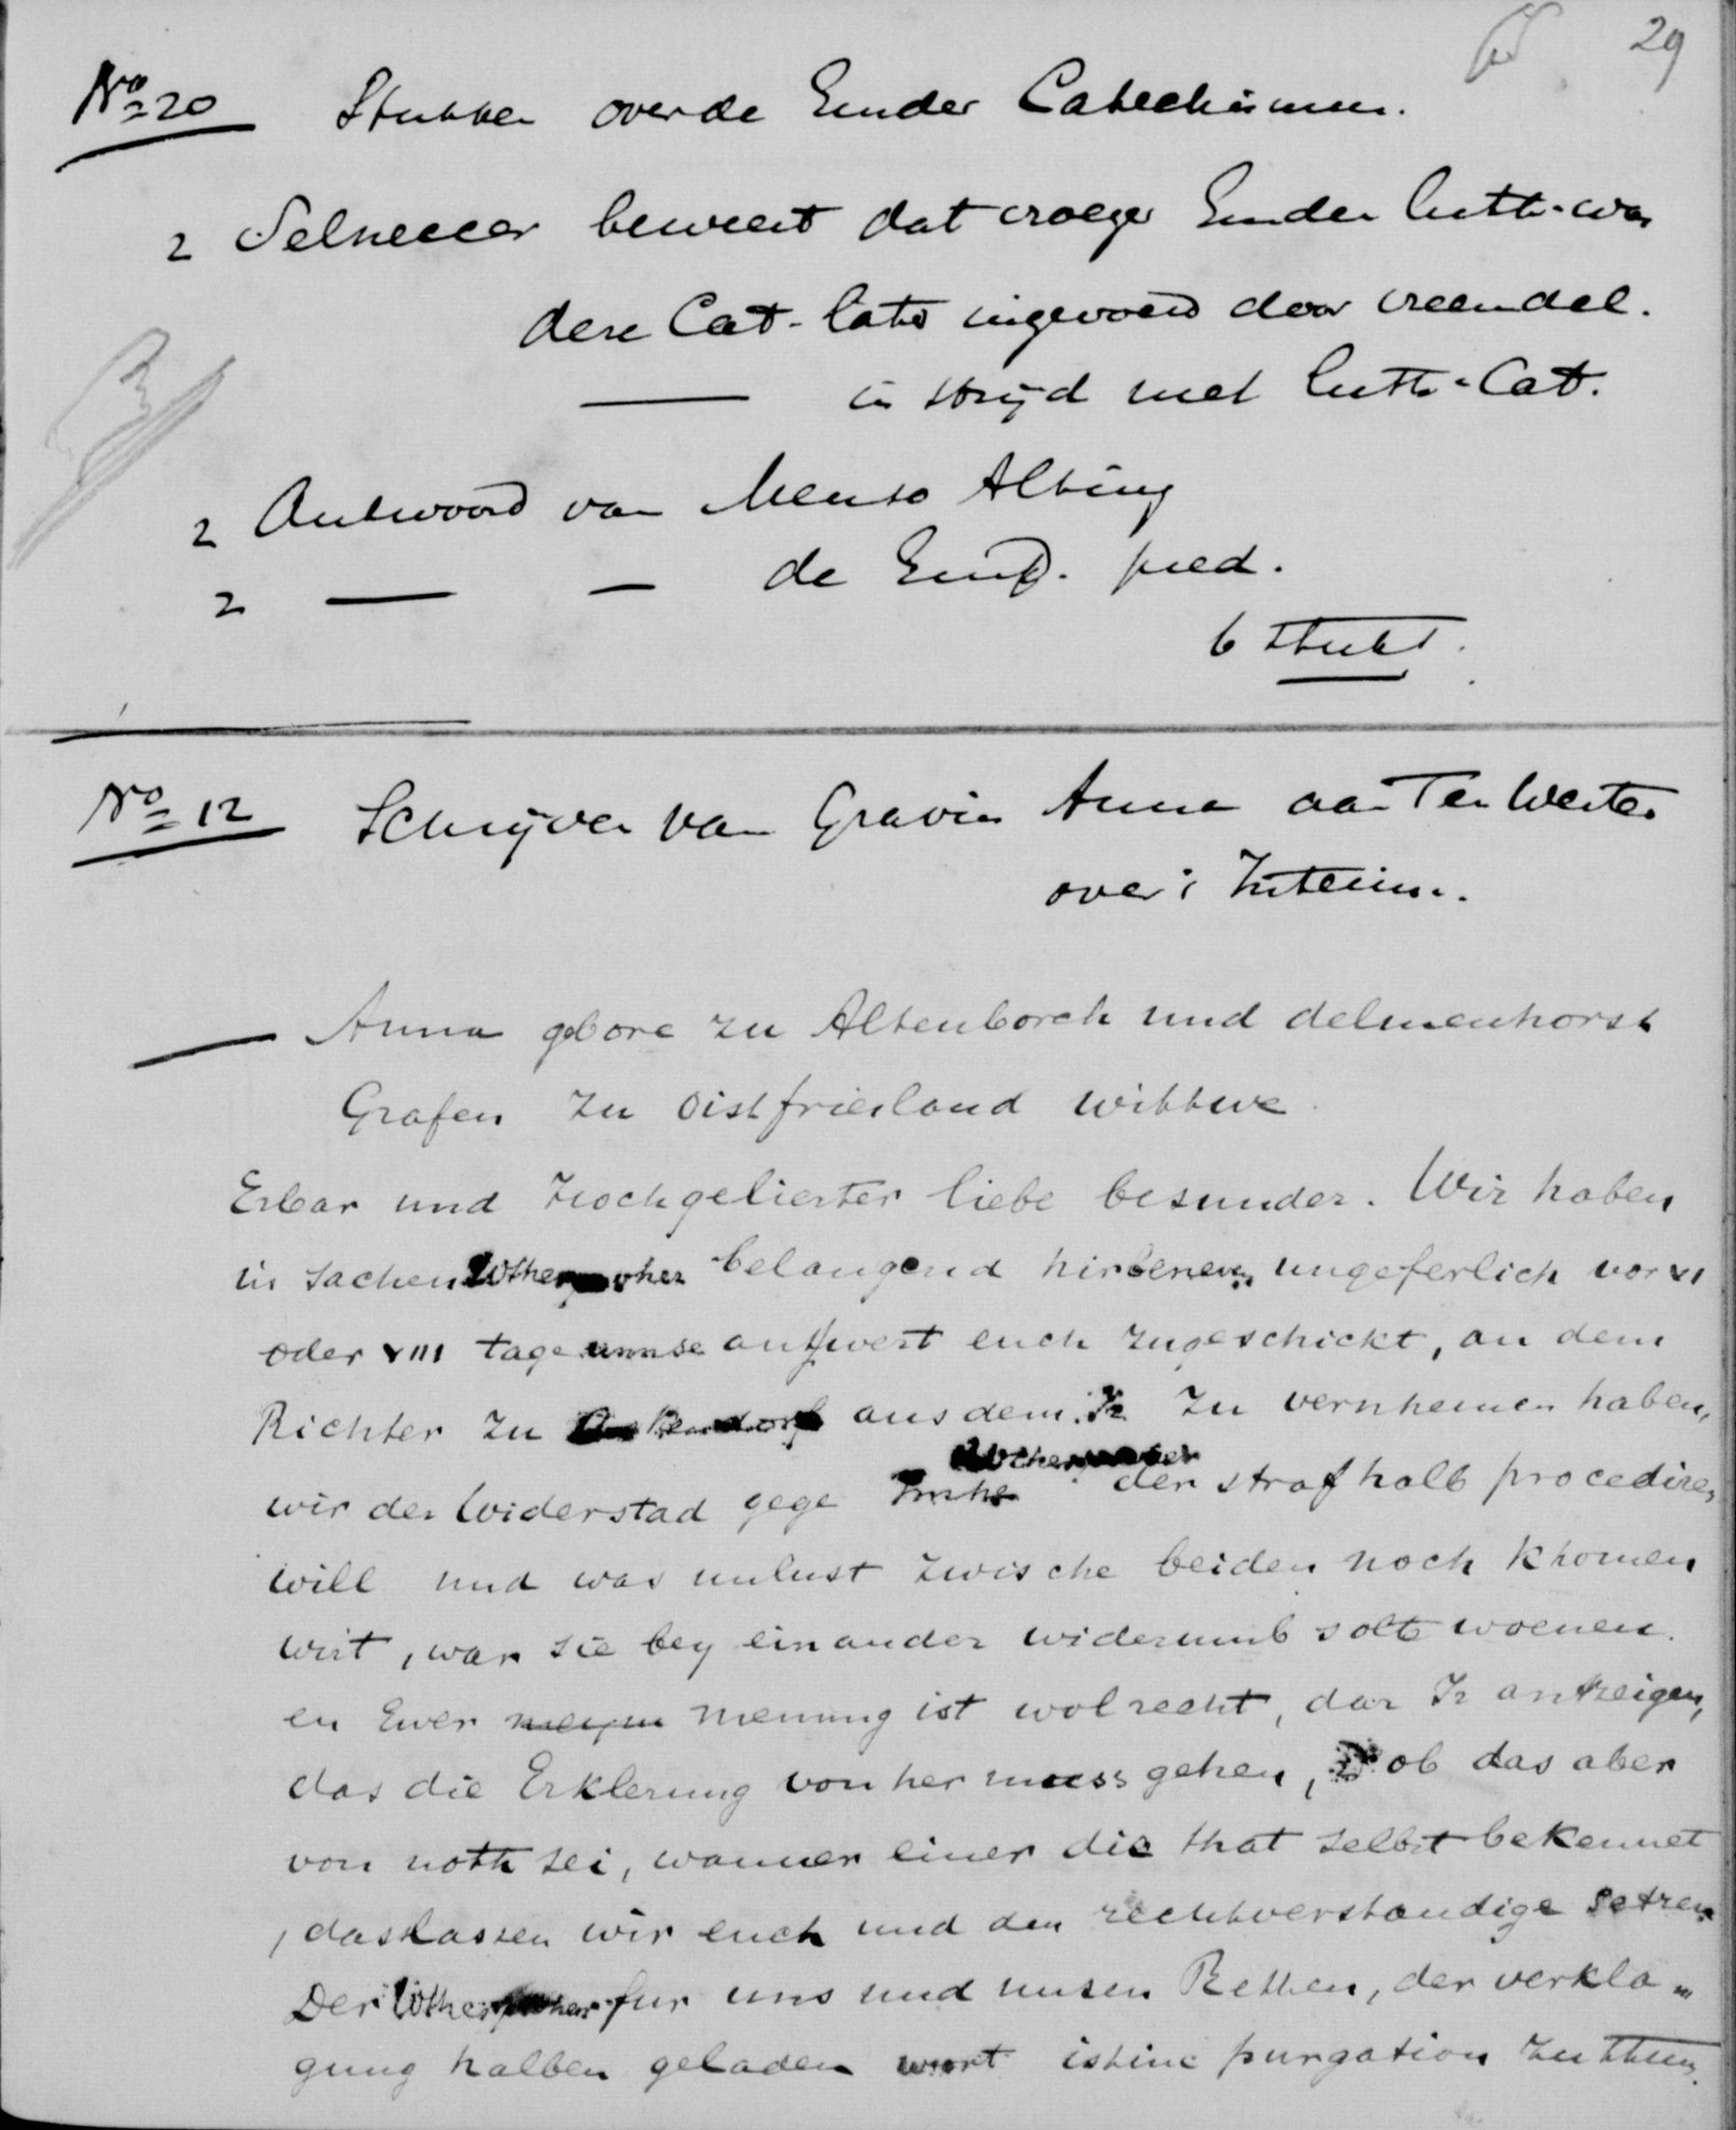 29
No 20 Stukken over de Emder Catechismus.
2 Selneccer beweert dat vroeger Emden luth. was
deze Cat. later ingevoerd door vreemdel.
—— in strijd met luth. Cat.
2 Antwoord van Menso Alting
2 —— — de Emd. pred.
6 stuks.
No 12 Schrijven van Gravin Anna aan Ten Westen
over 't Interim.
— Anna gebore zu Altenborch und delmenhorst
Grafen zu Oistfriesland wittwe.
Erbar und Hochgelierter liebe besunder. Wir haben
in sachen belangend hirbenevn ungeferlich vor VI
oder VIII tage antwert euch zugeschickt, an dem
Richter zu aus dem. Ir zu vernhemen haben,
wir der Widerstad gege der straf halb procediren
will und was unlust zwische beiden noch khomen
wirt, wan sie bey einander widerumb solte woenen.
en Ewer meyn menung ist wol recht, dar Ir antzeigen,
das die Erklerung von her muess gehen, ob das aber
von noth sei, wanner einer die that selbst bekennet
, das lassen wir euch und den rechtverstandige setzen
Der fur uns und unsen Rethen, der verkla„
gung halben geladen wort purgation zu thun.